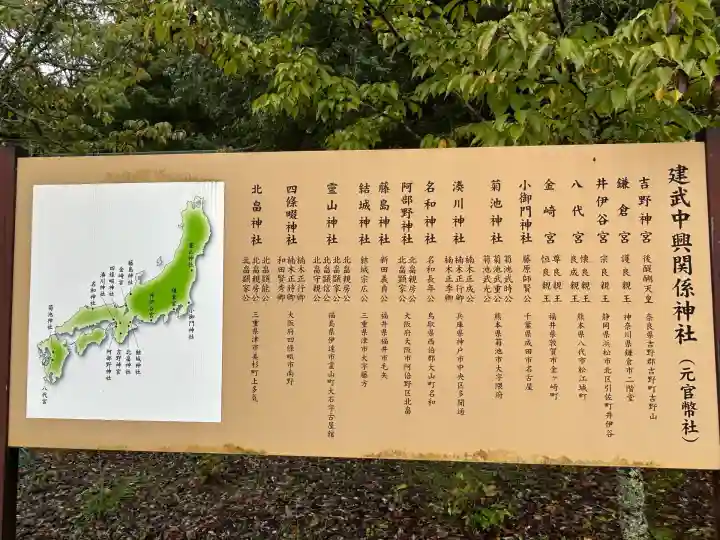 建武中興関係神社（元官幣社）
吉野神宮 後醍醐天皇 奈良県吉野郡吉野町吉野山
鎌倉宮 護良親王 神奈川県鎌倉市二階堂
井伊谷宮 宗良親王 静岡県浜松市北区引佐町井伊谷
八代宮 懐良親王 熊本県八代市松江城町
良成親王
金崎宮 尊良親王 福井県敦賀市金ヶ崎町
恒良親王
小御門神社 藤原師賢公 千葉県成田市名古屋
菊池神社 菊池武時公 熊本県菊池市大字隈府
菊池武重公
菊池武光公
湊川神社 楠木正成公 兵庫県神戸市中央区多聞通
楠木正行卿
楠木正季卿
名和神社 名和長年公 鳥取県西伯郡大山町名和
阿部野神社 北畠親房公 大阪府大阪市阿倍野区北畠
北畠顕家公
藤島神社 新田義貞公 福井県福井市毛矢
結城神社 結城宗広公 三重県津市大字藤方
霊山神社 北畠親房公 福島県伊達市霊山町大石字古屋舘
北畠顕家公
北畠顕信公
北畠守親公
四條畷神社 楠木正行卿 大阪府四條畷市南野
楠木正時卿
和田賢秀卿
北畠神社 北畠顕能公 三重県津市美杉町上多気
北畠親房公
北畠顕家公
霊山神社
鎌倉宮
小御門神社
井伊谷宮
藤島神社
金崎宮
四條畷神社
湊川神社
名和神社
菊池神社
結城神社
北畠神社
吉野神宮
阿部野神社
八代宮